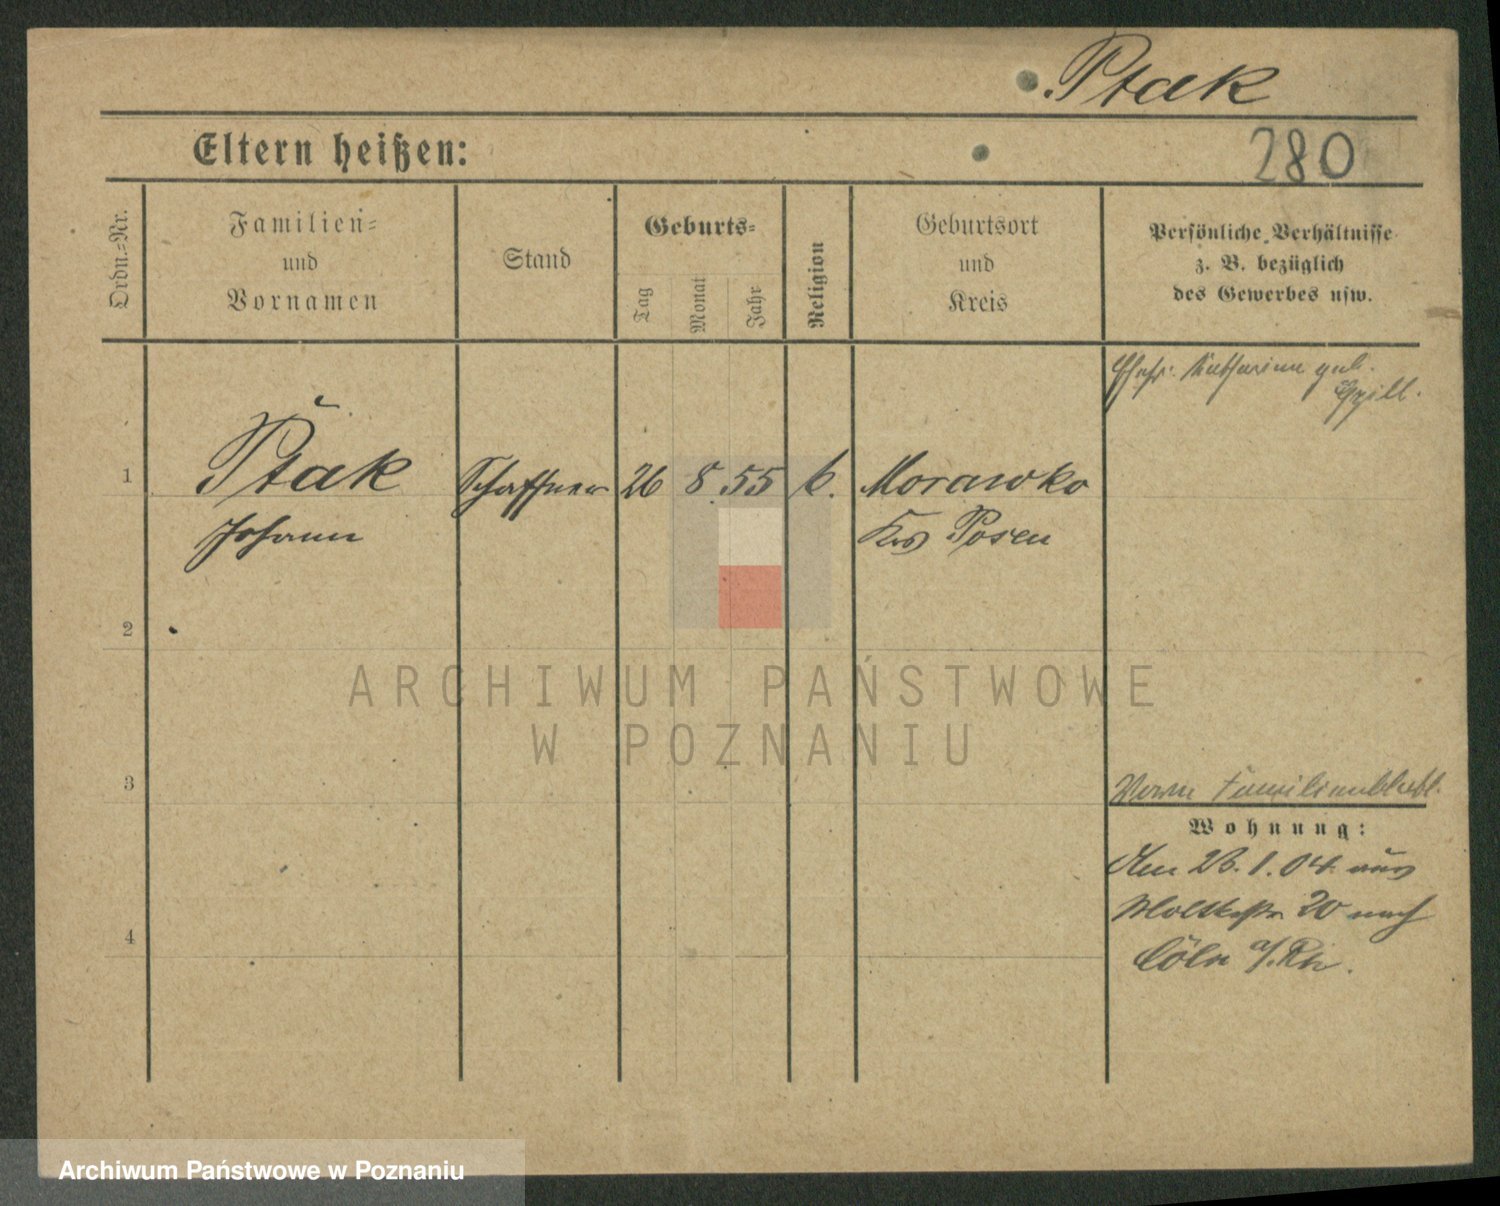 Ptak
Eltern heißen:
280
Ordn.-Nr.
Familien-
und
Vornamen
Stand
Geburts-
Tag
Monat
Jahr
Religion
Geburtsort
und
Kreis
Persönliche Verhältnisse
z. B. bezüglich
des Gewerbes usw.
Ehefr: Katharina geb.
1
Ptak
Schaffner
26
8
55
k.
Morawko
Johann
Krs Posen
2
ARCHIWUM PAŃSTWOWE
W POZNANIU
3
Familienblatt
Wohnung:
4
Am 23.1.04 aus
Moltkestr 20 nach
Cöln a/Rh.
Archiwum Państwowe w Poznaniu